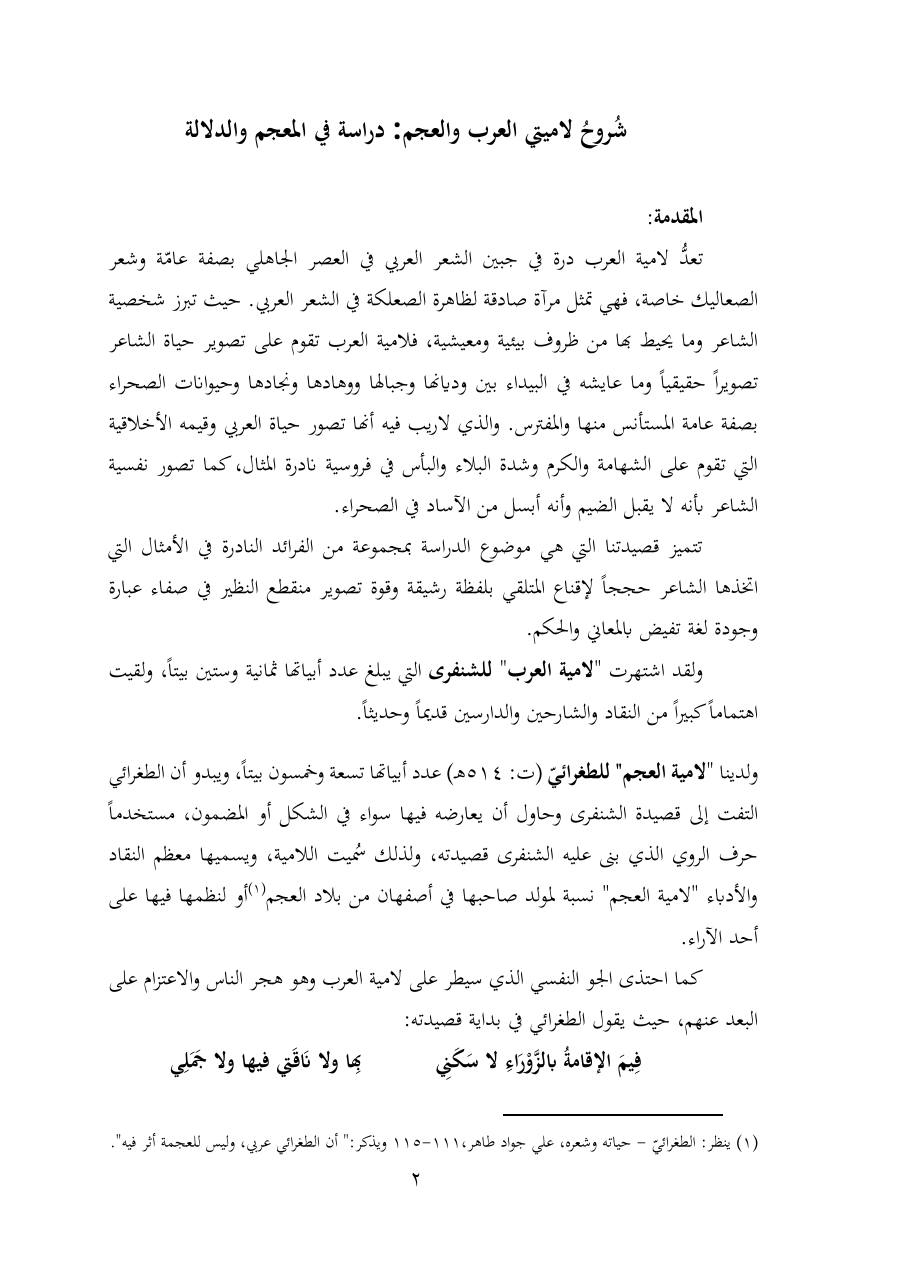 شُروحُ لاميتي العرب والعجم: دراسة في المعجم والدلالة
المقدمة:
تعدُّ لامية العرب درة في جبين الشعر العربي في العصر الجاهلي بصفة عامّة وشعر
الصعاليك خاصة، فهي تمثل مرآة صادقة لظاهرة الصعلكة في الشعر العربي. حيث تبرز شخصية
الشاعر وما يحيط بها من ظروف بيئية ومعيشية، فلامية العرب تقوم على تصوير حياة الشاعر
تصويراً حقيقياً وما عايشه في البيداء بين وديانها وجبالها ووهادها ونجادها وحيوانات الصحراء
بصفة عامة المستأنس منها والمفترس. والذي لاريب فيه أنها تصور حياة العربي وقيمه الأخلاقية
التي تقوم على الشهامة والكرم وشدة البلاء والبأس في فروسية نادرة المثال، كما تصور نفسية
الشاعر بأنه لا يقبل الضيم وأنه أبسل من الآساد في الصحراء.
تتميز قصيدتنا التي هي موضوع الدراسة بمجموعة من الفرائد النادرة في الأمثال التي
اتخذها الشاعر حججاً لإقناع المتلقي بلفظة رشيقة وقوة تصوير منقطع النظير في صفاء عبارة
وجودة لغة تفيض بالمعاني والحكم.
ولقد اشتهرت "لامية العرب" للشنفرى التي يبلغ عدد أبياتها ثمانية وستين بيتاً، ولقيت
اهتماماً كبيراً من النقاد والشارحين والدارسين قديماً وحديثاً.
ولدينا "لامية العجم" للطغرائيّ (ت: ٥١٤هـ) عدد أبياتها تسعة وخمسون بيتاً، ويبدو أن الطغرائي
التفت إلى قصيدة الشنفرى وحاول أن يعارضه فيها سواء في الشكل أو المضمون، مستخدماً
حرف الروي الذي بنى عليه الشنفرى قصيدته، ولذلك سُميت اللامية، ويسميها معظم النقاد
والأدباء "لامية العجم" نسبة لمولد صاحبها في أصفهان من بلاد العجم(١)أو لنظمها فيها على
أحد الآراء.
كما احتذى الجو النفسي الذي سيطر على لامية العرب وهو هجر الناس والاعتزام على
البعد عنهم، حيث يقول الطغرائي في بداية قصيدته:
فِيمَ الإقامةُ بالزَّوْرَاءِ لا سَكَنِي بِها ولا نَاقَتِي فيها ولا جَمَلِي
(١) ينظر: الطغرائيّ – حياته وشعره، علي جواد طاهر،١١١-١١٥ ويذكر:" أن الطغرائي عربي، وليس للعجمة أثر فيه".
٢